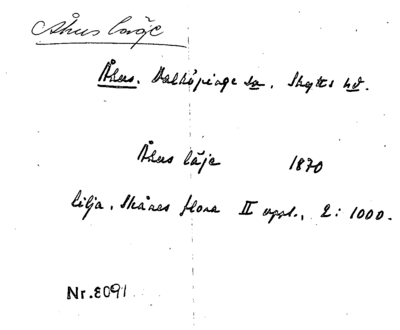 Åhus läje
Åhus. Dalköpinge sn. Skytts hd.
Åhus läje 1870
Lilja, Skånes flora II uppl., 2: 1000.
Nr. 8091